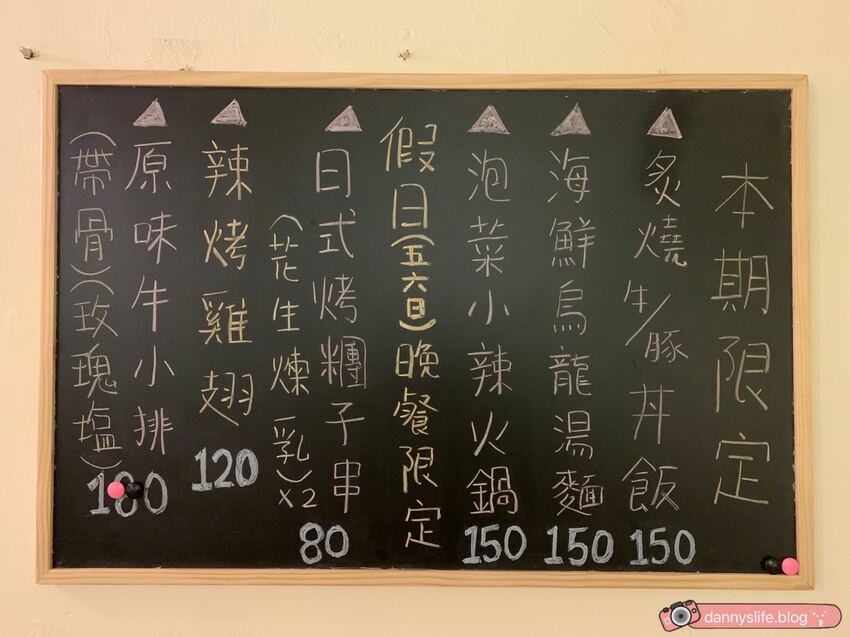 本期限定
炙燒牛/豚丼飯
150
海鮮烏龍湯麵
150
泡菜小辣火鍋
150
假日(五六日)晚餐限定
日式烤糰子串
(花生煉乳)x2
80
辣烤雞翅
120
原味牛小排
(帶骨)(玫瑰塩)
180
dannyslife.blog